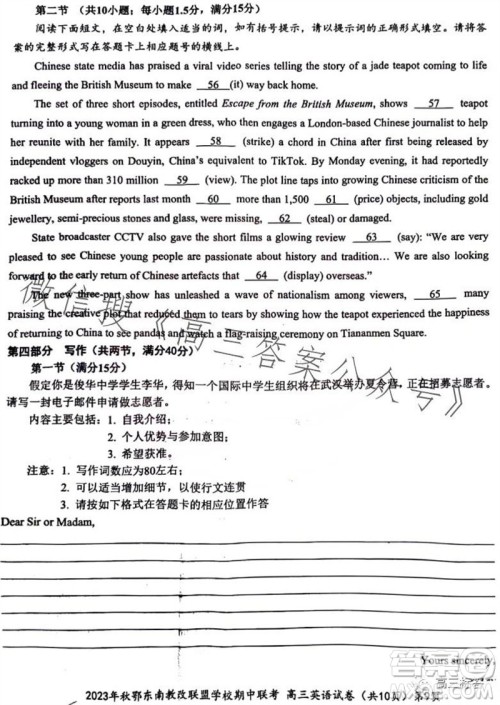 第二节 （共10小题；每小题1.5分，满分15分）
阅读下面短文，在空白处填入适当的词，如有括号提示，请以提示词的正确形式填空。请将答
案的完整形式写在答题卡上相应题号的横线上。
Chinese state media has praised a viral video series telling the story of a jade teapot coming to life
and fleeing the British Museum to make __56__(it) way back home.
The set of three short episodes, entitled Escape from the British Museum, shows __57__ teapot
turning into a young woman in a green dress, who then engages a London-based Chinese journalist to help
her reunite with her family. It appears __58__ (strike) a chord in China after first being released by
independent vloggers on Douyin, China's equivalent to TikTok. By Monday evening, it had reportedly
racked up more than 310 million __59__ (view). The plot line taps into growing Chinese criticism of the
British Museum after reports last month __60__ more than 1,500 __61__ (price) objects, including gold
jewellery, semi-precious stones and glass, were missing, __62__ (steal) or damaged.
State broadcaster CCTV also gave the short films a glowing review __63__ (say): "We are very
pleased to see Chinese young people are passionate about history and tradition… We are also looking
forward to the early return of Chinese artefacts that __64__ (display) overseas."
The new three-part show has unleashed a wave of nationalism among viewers, __65__ many
praising the creative plot that reduced them to tears by showing how the teapot experienced the happiness
of returning to China to see pandas and watch a flag-raising ceremony on Tiananmen Square.
第四部分 写作（共两节，满分40分）
第一节（满分15分）
假定你是俊华中学学生李华，得知一个国际中学生组织将在武汉举办夏令营，正在招募志愿者。
请写一封电子邮件申请做志愿者。
内容主要包括：1. 自我介绍；
2. 个人优势与参加意图；
3. 希望获准。
注意：1. 写作词数应为80左右；
2. 可以适当增加细节，以使行文连贯
3. 请按如下格式在答题卡的相应位置作答
Dear Sir or Madam,
Yours sincerely,
2023年秋鄂东南教改联盟学校期中联考 高三英语试卷（共10页）第9页
微信搜《高三答案公众号》